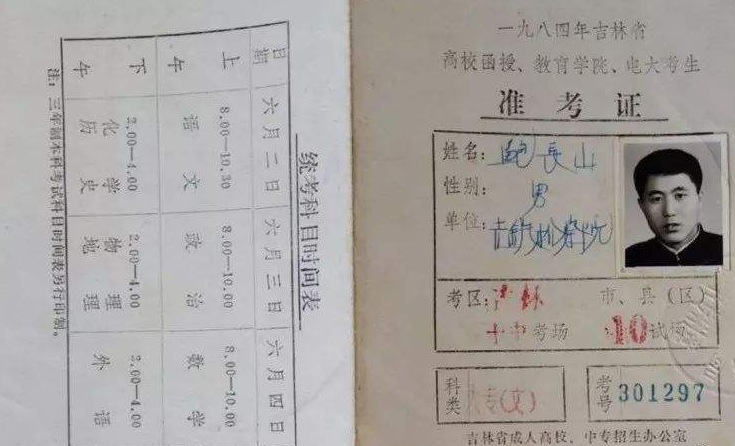 统考科目时间表
日期 六月二日 六月三日 六月四日
上午 8.00—10.30 语文 8.00—10.00 政治 8.00—10.00 数学
下午 2.00—4.00 化学 历史 2.00—4.00 物理 地理 2.00—4.00 外语
注：三年制本科考试科目时间表另行印制。
一九八四年吉林省
高校函授、教育学院、电大考生
准考证
姓名：鲍長山
性别：男
单位：
考区：吉林 市、县（区）
十中考场 10试场
科类 (文)
考号 301297
吉林省成人高校、中专招生办公室